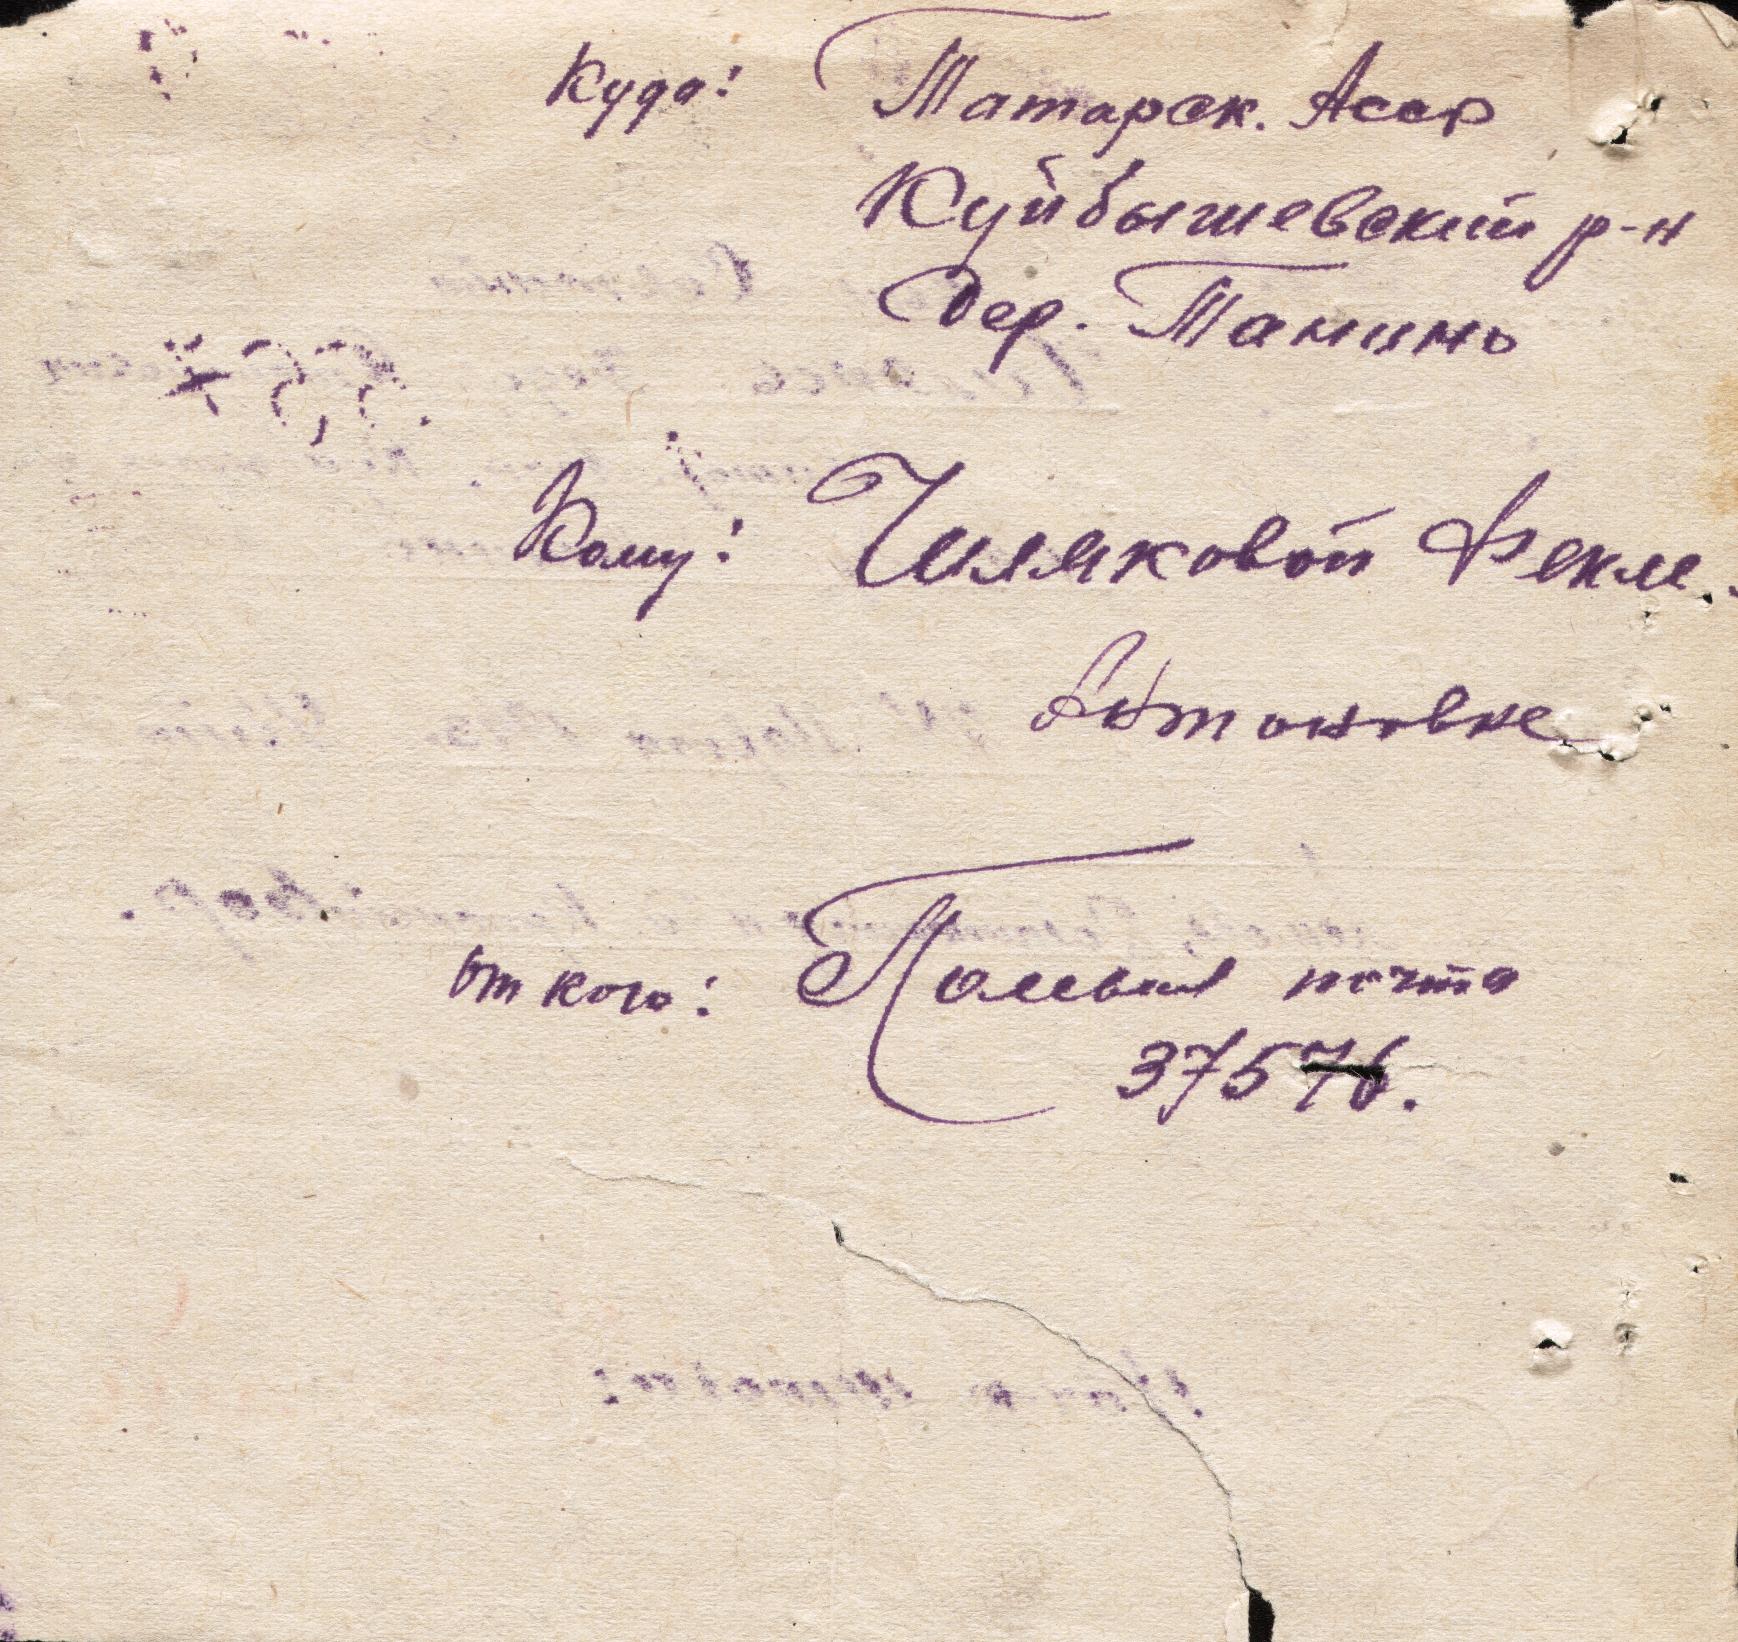 Куда: Татарск. Асср
Куйбышевский р-н
Дер. Танино
Кому: Чиляковой Фекле.
Антоновне
от кого: Полевая почта
37576.